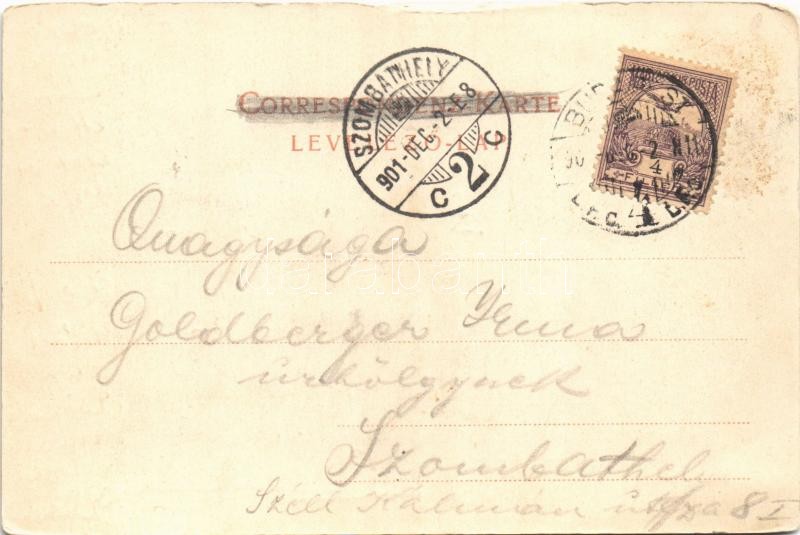 CORRESPONDENZ-KARTE
LEVELEZŐ-LAP
SZOMBATHELY
901-DEC.-2-E8
C 2 C
BUDAPEST
Őnagysága
Goldberger Irma
úrhölgynek
Szombathely
Széll Kálmán utcza 8 I